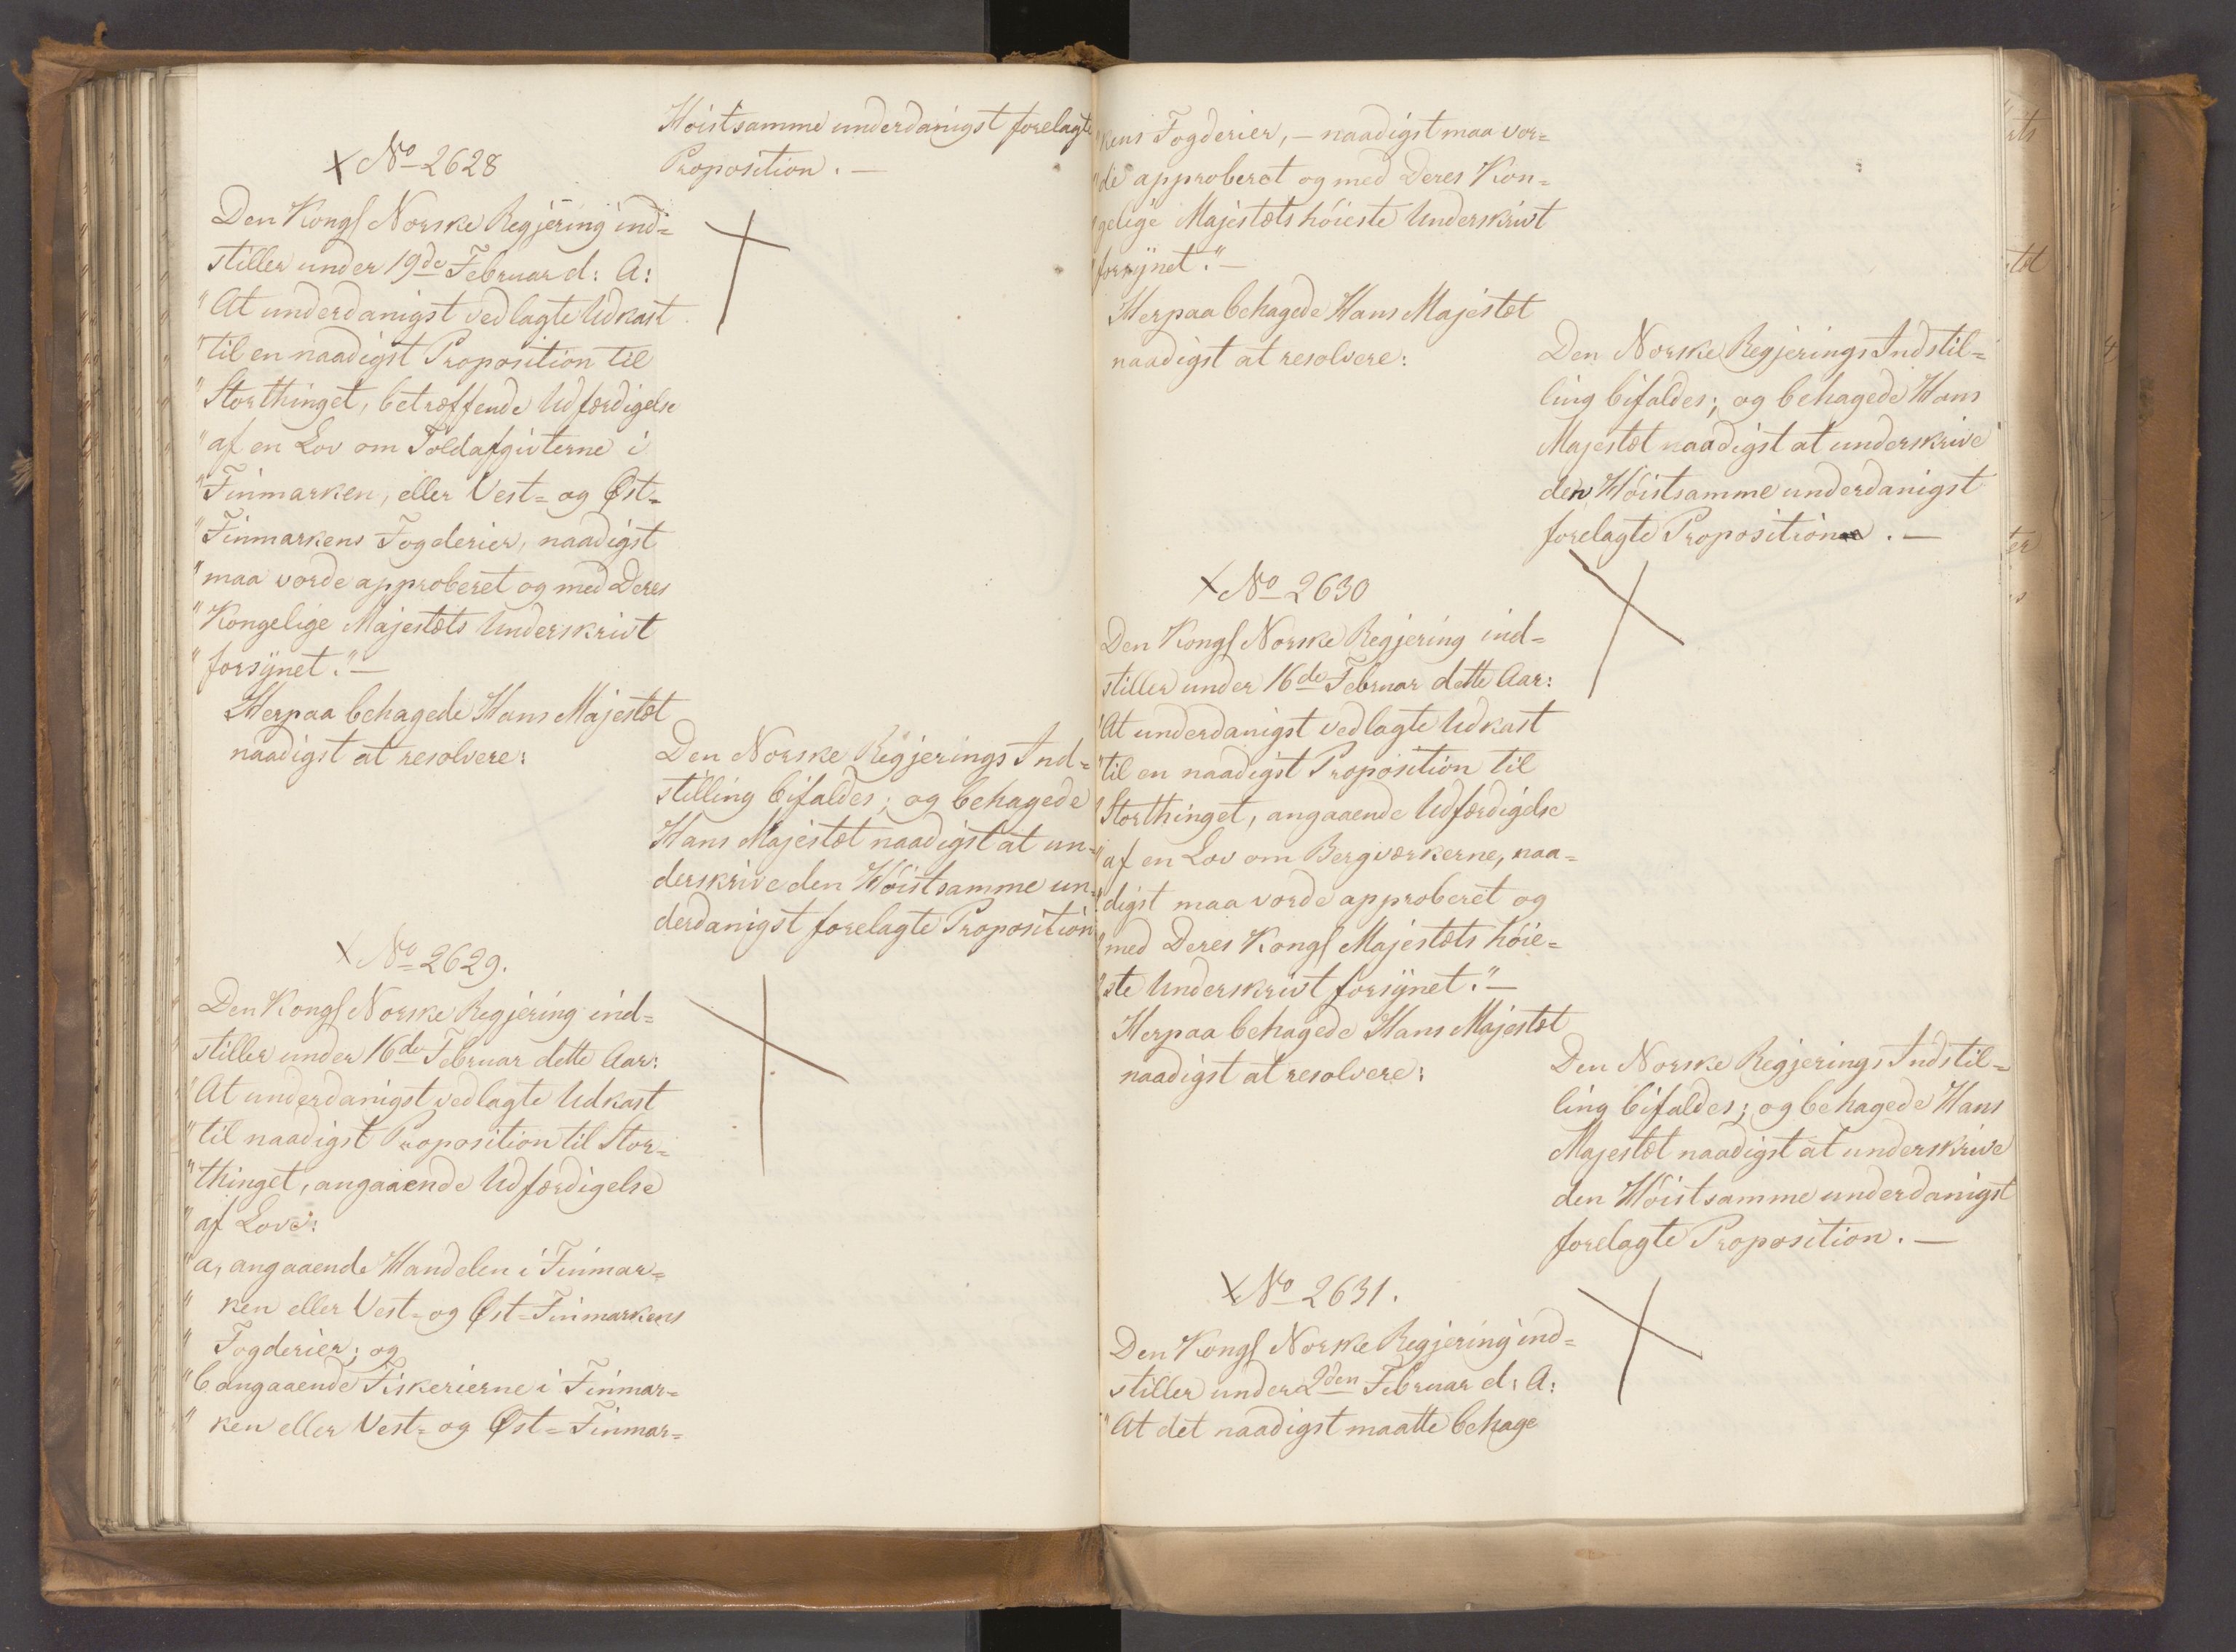 Höistsamme underdanigst forelagte
Proposition. —
No 2628
Den Kongl Norske Regjering ind=
stiller under 19de Februar d: A:
"At underdanigst vedlagte Udkast
"til en naadigst Proposition til
"Storthinget, betræffende Udfærdigelse
"af en Lov om Toldafgivterne i
"Finmarken, eller Vest= og Øst=
"Finmarkens Fogderier, naadigst
"maa vorde approberet og med Deres
"Kongelige Majestæts Underskrivt
"forsÿnet." —
Herpaa behagede Hans Majestæt
naadigst at resolvere:
Den Norske Regjerings Ind=
stilling bifaldes; og behagede
Hans Majestæt naadigst at un=
derskrive den Höistsamme un=
derdanigst forelagte Proposition
No 2629.
Den Kongl Norske Regjering ind=
stiller under 16de Februar dette Aar:
"At underdanigst vedlagte Udkast
"til naadigst Proposition til Stor=
"thinget, angaaende Udfærdigelse
"af Love:
"a, angaaende Handelen i Finmar=
" ken eller Vest= og Øst=Finmarkens
" Fogderier; og
"b angaaende Fiskerierne i Finmar=
" ken eller Vest= og Øst=Finmar=
"kens Fogderier, — naadigst maa vor=
"de approberet og med Deres Kon=
"gelige Majestæts höieste Underskrivt
"forsÿnet." —
Herpaa behagede Hans Majestæt
naadigst at resolvere:
Den Norske Regjerings Indstil=
ling bifaldes; og behagede Hans
Majestæt naadigst at underskrive
den Höistsamme underdanigst
forelagte Proposition. —
No 2630
Den Kongl Norske Regjering ind=
stiller under 16de Februar dette Aar:
"At underdanigst vedlagte Udkast
"til en naadigst Proposition til
"Storthinget, angaaende Udfærdigelse
"af en Lov om Bergværkerne, naa=
"digst maa vorde approberet og
"med Deres Kongl Majestæts höie=
"ste Underskrivt forsÿnet." —
Herpaa behagede Hans Majestæt
naadigst at resolvere:
Den Norske Regjerings Indstil=
ling bifaldes; og behagede Hans
Majestæt naadigst at underskrive
den Höistsamme underdanigst
forelagte Proposition. —
No 2631.
Den Kongl Norske Regjering ind=
stiller under 2den Februar d: A:
"At det naadigst maatte behage